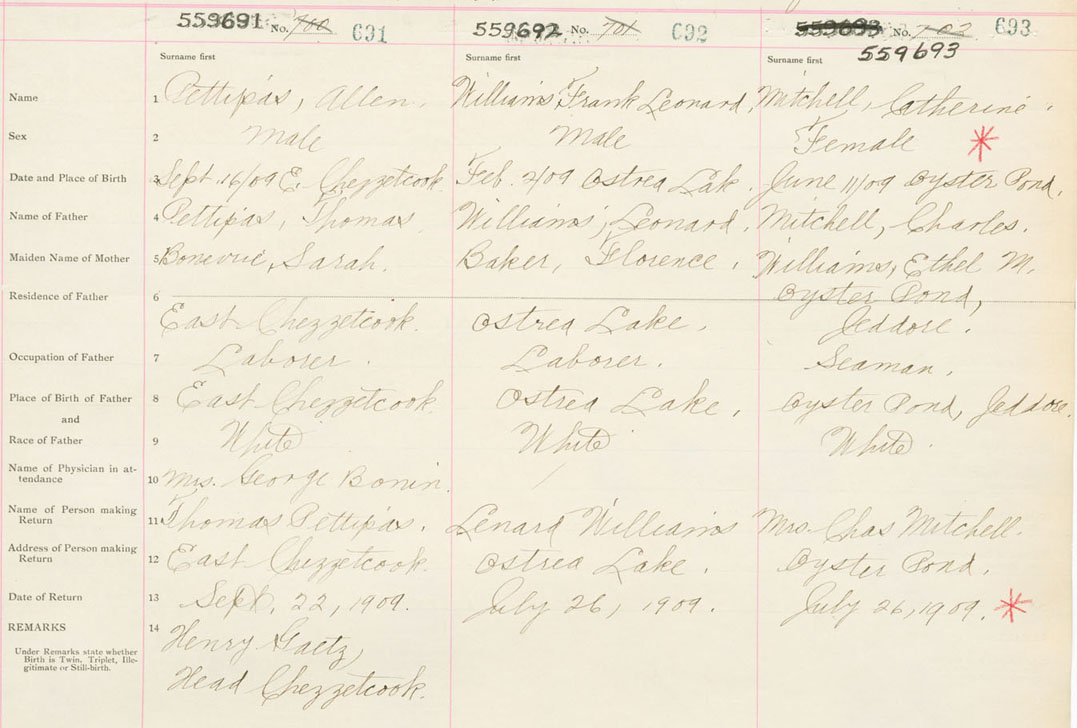 559691 No. 700 691 559692 No. 701 692 559693 No. 702 693
559693
Surname first Surname first Surname first
Name 1 Pettipas, Allen. Williams, Frank Leonard. Mitchell, Catherine.
Sex 2 Male Male Female
Date and Place of Birth 3 Sept. 16/09 E. Chezzetcook Feb. 2/09 Ostrea Lak. June 11/09 Oyster Pond.
Name of Father 4 Pettipas, Thomas. Williams, Leonard. Mitchell, Charles.
Maiden Name of Mother 5 Bonevrie, Sarah. Baker, Florence. Williams, Ethel M.
Residence of Father 6 Oyster Pond,
East Chezzetcook. Ostrea Lake. Jeddore.
Occupation of Father 7 Laborer. Laborer. Seaman.
Place of Birth of Father 8 East Chezzetcook. Ostrea Lake. Oyster Pond, Jeddore.
and
Race of Father 9 White White White.
Name of Physician in at-
tendance 10 Mrs. George Bonin.
Name of Person making
Return 11 Thomas Pettipas. Lenard Williams Mrs. Chas Mitchell.
Address of Person making
Return 12 East Chezzetcook. Ostrea Lake. Oyster Pond.
Date of Return 13 Sept. 22, 1909. July 26, 1909. July 26, 1909.
REMARKS 14 Henry Gaetz,
Under Remarks state whether
Birth is Twin. Triplet, Ille-
gitimate or Still-birth.
Head Chezzetcook.